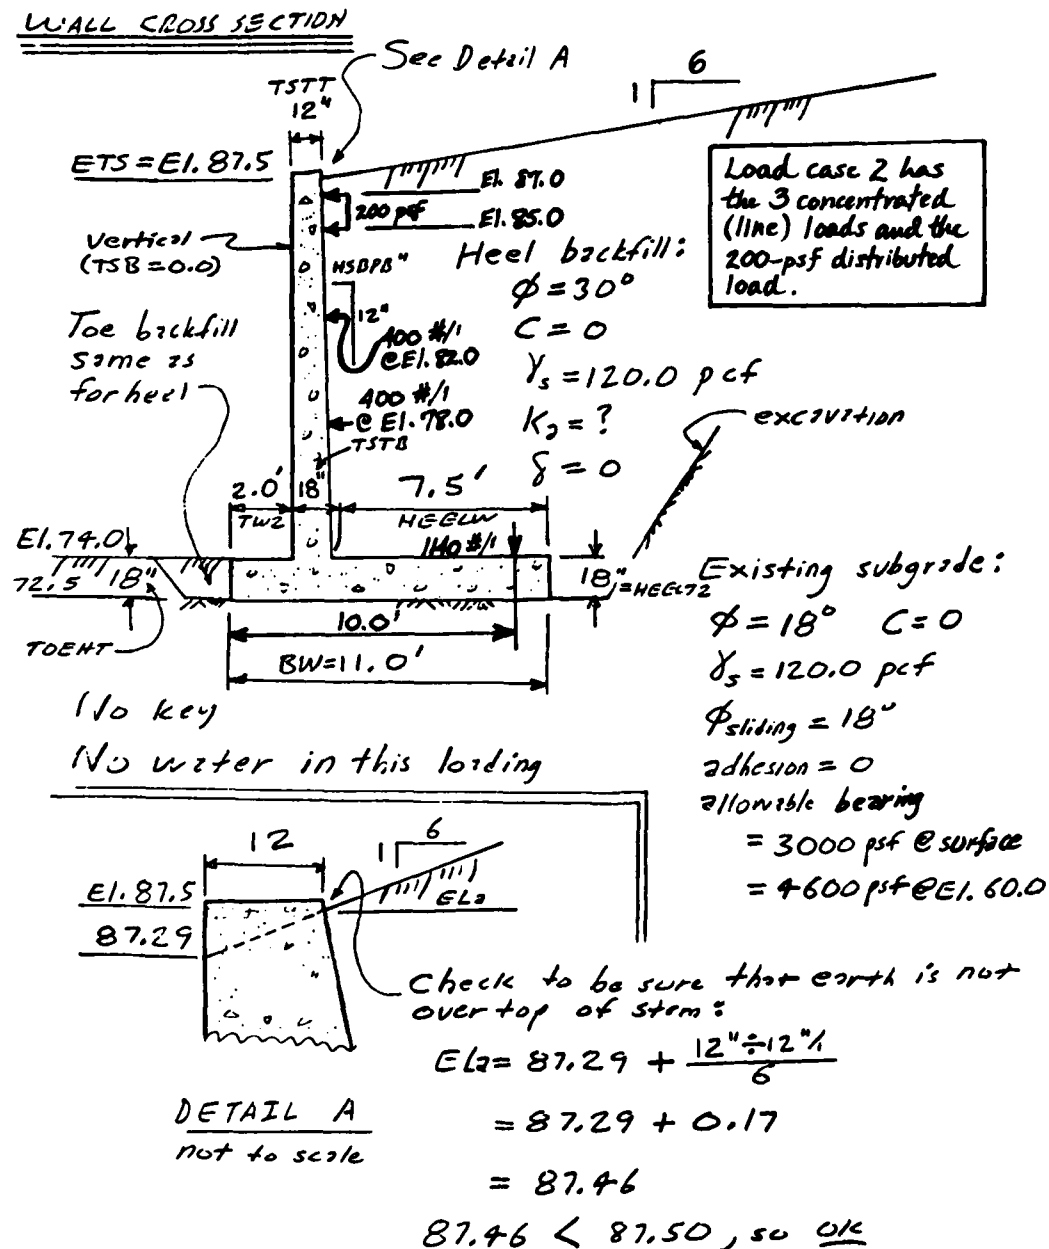 WALL CROSS SECTION
See Detail A
TSTT
12"
6
1
ETS = El. 87.5
El. 87.0
200 psf
El. 85.0
Load case 2 has
the 3 concentrated
(line) loads and the
200-psf distributed
load.
vertical
(TSB = 0.0)
HSBPB"
Heel backfill:
φ = 30°
C = 0
γs = 120.0 pcf
Ka = ?
δ = 0
12"
400 #/1
@ El. 82.0
Toe backfill
same as
for heel
400 #/1
@ El. 78.0
TSTB
excavation
2.0'
18"
7.5'
TW2
HEELW
1140 #/1
El. 74.0
72.5
18"
18"
=HEELT2
TOEHT
10.0'
BW=11.0'
Existing subgrade:
φ = 18° C = 0
γs = 120.0 pcf
φsliding = 18°
adhesion = 0
allowable bearing
= 3000 psf @ surface
= 4600 psf @ El. 60.0
No key
No water in this loading
12
1
6
El. 87.5
ELa
87.29
Check to be sure that earth is not
over top of stem:
ELa = 87.29 + 12"÷12"/1
6
= 87.29 + 0.17
= 87.46
87.46 < 87.50, so OK
DETAIL A
not to scale